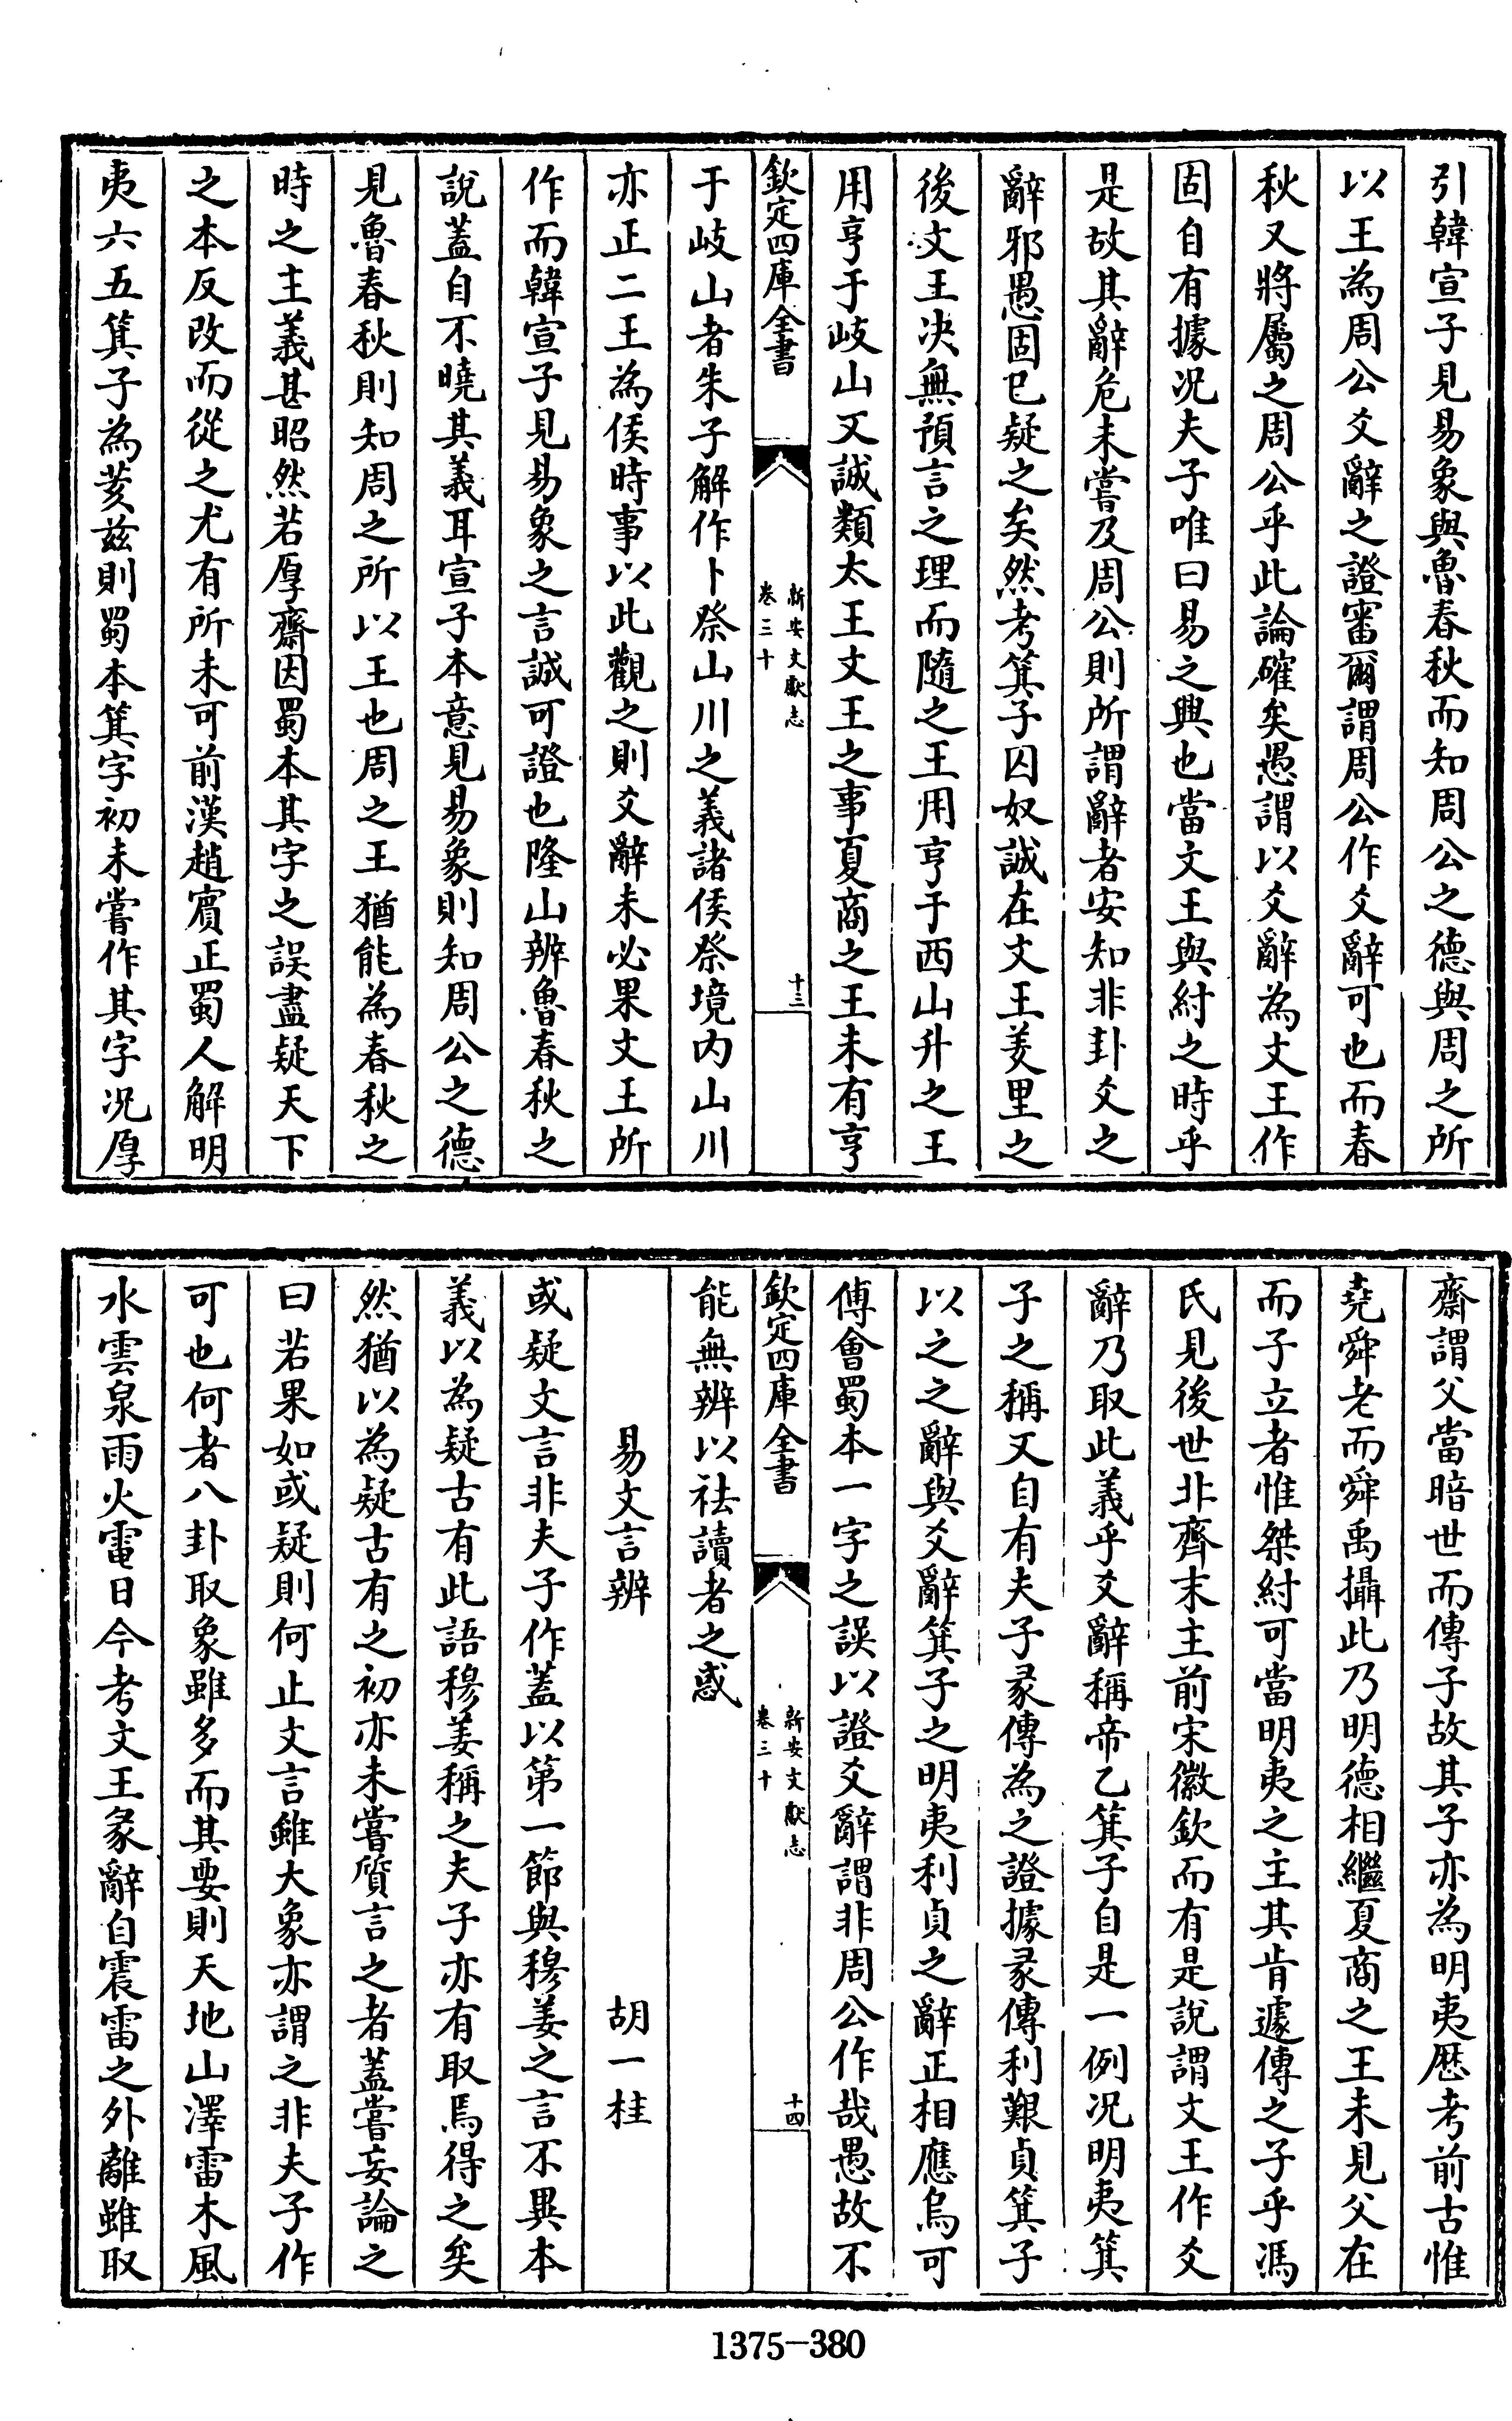 引韓宣子見易象與魯春秋而知周公之德與周之所
以王為周公爻辭之證審爾謂周公作爻辭可也而春
秋又將屬之周公乎此論確矣愚謂以爻辭為文王作
固自有據况夫子唯曰易之興也當文王與紂之時乎
是故其辭危未嘗及周公則所謂辭者安知非卦爻之
辭邪愚固已疑之矣然考箕子囚奴誠在文王羑里之
後文王决無預言之理而隨之王用亨于西山升之王
用亨于岐山又誠類太王文王之事夏商之王未有亨
欽定四庫全書
新安文獻志
卷三十
十三
于岐山者朱子解作卜祭山川之義諸侯祭境内山川
亦正二王為侯時事以此觀之則爻辭未必果文王所
作而韓宣子見易象之言誠可證也隆山辨魯春秋之
說蓋自不曉其義耳宣子本意見易象則知周公之德
見魯春秋則知周之所以王也周之王猶能為春秋之
時之主義甚昭然若厚齋因蜀本其字之誤盡疑天下
之本反改而從之尤有所未可前漢趙賓正蜀人解明
夷六五箕子為荄兹則蜀本箕字初未嘗作其字况厚
齋謂父當暗世而傳子故其子亦為明夷歴考前古惟
堯舜老而舜禹攝此乃明德相繼夏商之王未見父在
而子立者惟桀紂可當明夷之主其肯遽傳之子乎馮
氏見後世北齊末主前宋徽欽而有是說謂文王作爻
辭乃取此義乎爻辭稱帝乙箕子自是一例况明夷箕
子之稱又自有夫子彖傳為之證據彖傳利艱貞箕子
以之之辭與爻辭箕子之明夷利貞之辭正相應烏可
傅會蜀本一字之誤以證爻辭謂非周公作哉愚故不
欽定四庫全書
新安文獻志
卷三十
十四
能無辨以祛讀者之惑
易文言辨 胡一桂
或疑文言非夫子作蓋以第一節與穆姜之言不異本
義以為疑古有此語穆姜稱之夫子亦有取焉得之矣
然猶以為疑古有之初亦未嘗質言之者蓋嘗妄論之
曰若果如或疑則何止文言雖大象亦謂之非夫子作
可也何者八卦取象雖多而其要則天地山澤雷木風
水雲泉雨火電日今考文王彖辭自震雷之外離雖取
1375-380